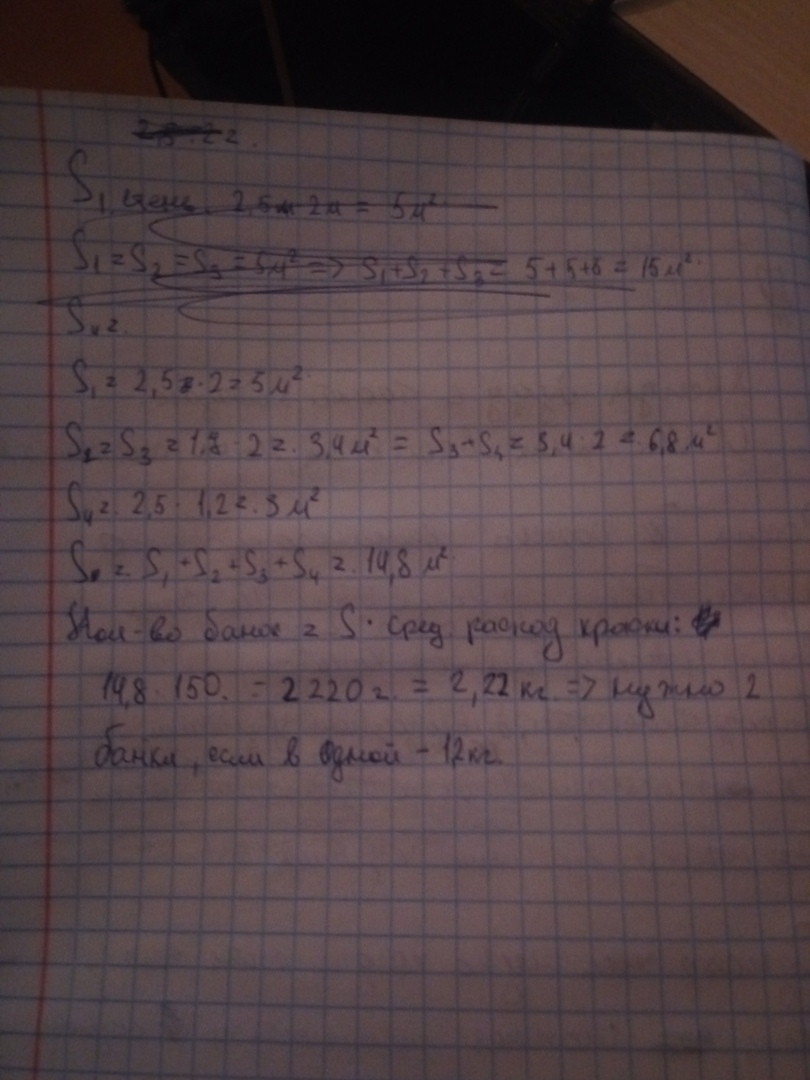 S₁ 2,5м 2м = 5м²
S₁ = S₂ = S₃ = 5м² => S₁+S₂+S₃ = 5+5+5 = 15м².
S₄ =
S₁ = 2,5 · 2 = 5 м²
S₂ = S₃ = 1,7 · 2 = 3,4м² = S₃+S₂ = 3,4 · 2 = 6,8 м²
S₄ = 2,5 · 1,2 = 3 м²
S = S₁ + S₂ + S₃ + S₄ = 14,8 м²
Кол-во банок = S · сред расход краски:
14,8 · 150 = 2220 г. = 2,22 кг => нужно 2
банки, если в одной - 12кг.